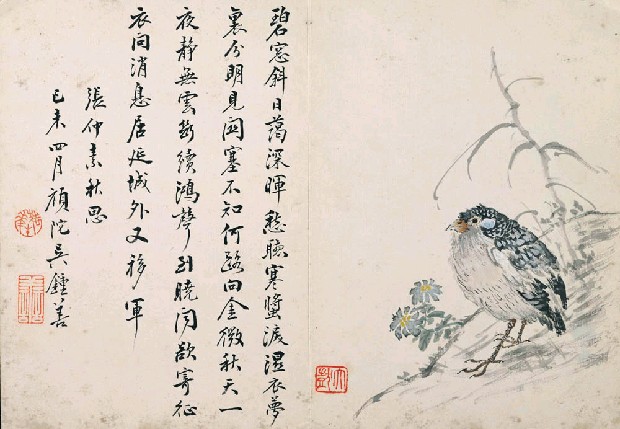 碧窓斜日藹深暉愁聽寒螿淚溼衣夢
裏分明見関塞不知何路向金微秋天一
夜靜無雲斷續鴻聲到曉聞欲寄征
衣問消息居延城外又移軍
張仲素秋思
己未四月頑陀吳鍾善